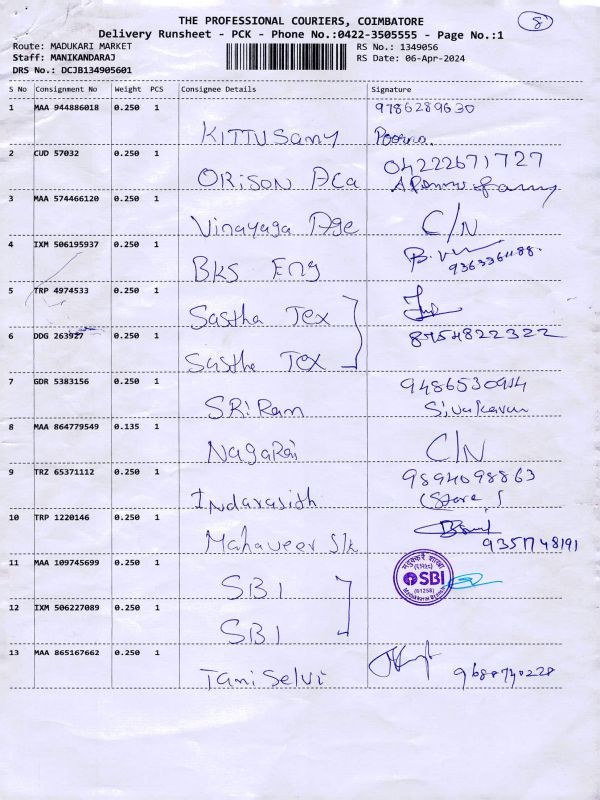 THE PROFESSIONAL COURIERS, COIMBATORE
8
Delivery Runsheet - PCK - Phone No.:0422-3505555 - Page No.:1
Route: MADUKARI MARKET
RS No.: 1349056
Staff: MANIKANDARAJ
RS Date: 06-Apr-2024
DRS No.: DCJB134905601
S No Consignment No Weight PCS Consignee Details Signature
1 MAA 944886018 0.250 1 9786289630
KITTUSamy Poorna.
2 CUD 57032 0.250 1 04222671727
ORISON Aca
3 MAA 574466120 0.250 1
Vinayaga Age C/N
4 IXM 506195937 0.250 1
BKS Eng
5 TRP 4974533 0.250 1
Sastha Tex
6 DDG 263927 0.250 1 8754822322
Sastha Tex
7 GDR 5383156 0.250 1
SRiRam Sivakavun
8 MAA 864779549 0.135 1
NagaRaj C/N
9 TRZ 65371112 0.250 1 9894098863
Indarasith (Store)
10 TRP 1220146 0.250 1
Mahaveer Slk
11 MAA 109745699 0.250 1
SBI SBI
(01258)
12 IXM 506227089 0.250 1
SBI
13 MAA 865167662 0.250 1
Tamiselvi 9688740228